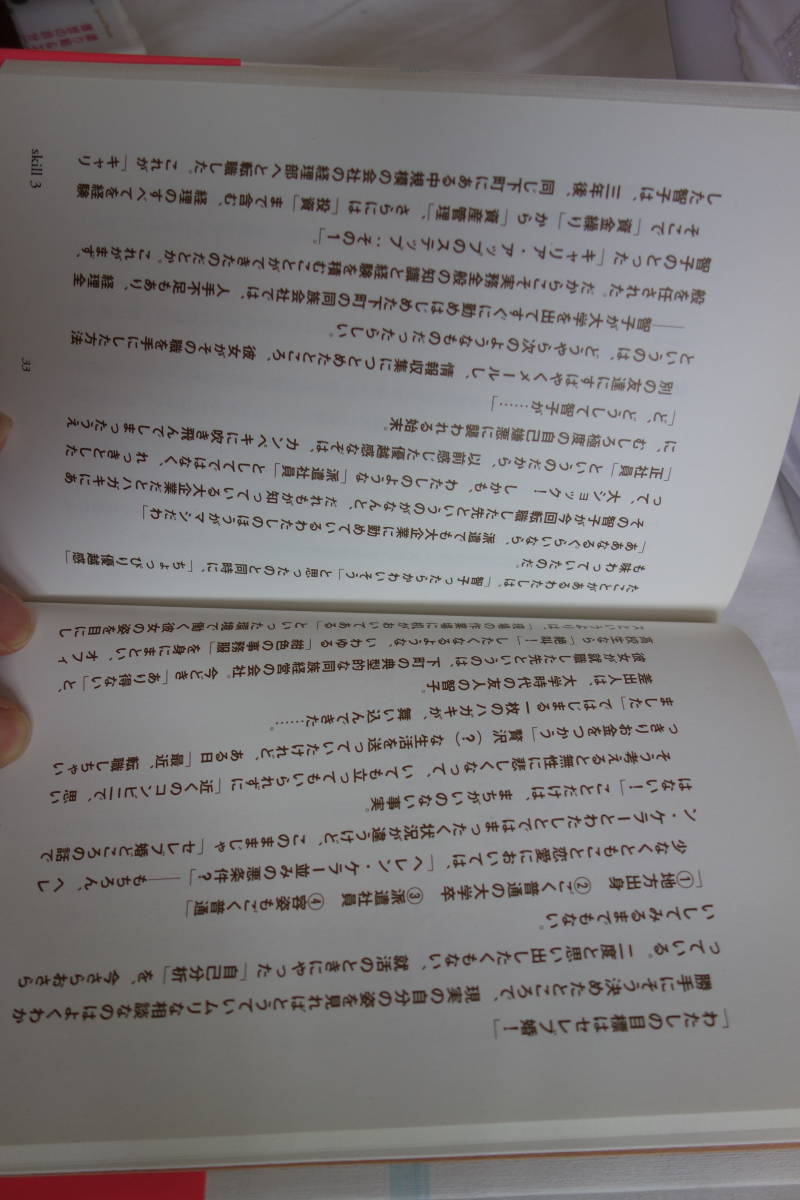 「わたしの目標はセレブ婚！」
勝手にそう決めたところで、現実の自分の姿を見ればとうていムリな相談なのはよくわか
っている。二度と思い出したくもない、就活のときにやった「自己分析」を、今さらおさら
いしてみるまでもない。
「①地方出身　②ごく普通の大学卒　③派遣社員　④容姿もごく普通」
少なくともこと恋愛においては、「ヘレン・ケラー並みの悪条件？」――もちろん、ヘレ
ン・ケラーとわたしとではまったく状況が違うけど、このままじゃ「セレブ婚どころの話で
はない！」ことだけは、まちがいのない事実。
そう考えると無性に悲しくなって、いても立ってもいられずに「近くのコンビニで、思い
っきりお金をつかう」贅沢（？）な生活を送っていたけれど、ある日「最近、転職しちゃい
ました」ではじまる一枚のハガキが、舞い込んできた……。
差出人は、大学時代の友人の智子。
彼女が就職した先というのは、下町の典型的な同族経営の会社。今どき「あり得ない」と、
高校生なら「絶叫！」したくなるような、いわゆる「紺色の事務服」を身にまとい、オフィ
スというよりは、「現場の作業場に机がおいてある」といった環境で働く彼女の姿を目にし
たことがあるわたしは、「智子ったらかわいそう」と思ったのと同時に、「ちょっぴり優越感」
も味わっていたのだ。
「あなるぐらいなら、派遣でも大企業に勤めているわたしのほうがマシだわ」
その智子が今回転職した先というのがなんと、だれもが知っている大企業だとハガキにあ
って、大ショック！　しかも、わたしのような「派遣社員」としてではなく、れっきとした
「正社員」というのだから、以前感じた優越感なぞは、カンペキに吹き飛んでしまったうえ
に、むしろ極度の自己嫌悪に襲われる始末。
「ど、どうして智子が……」
別の友達にすばやくメールし、情報収集につとめたところ、彼女がその職を手にした方法
というのは、どうやら次のようなものだったらしい。
――智子が大学を出てすぐに勤めはじめた下町の同族会社では、人手不足もあり、経理全
般を任された。だからこそ実務全般の知識と経験を積むことができたのだとか。これがまず、
智子のとった「キャリア・アップのステップ：その１」。
そこで「資金繰り」から「資産管理」、さらには「投資」まで含む、経理のすべてを経験
した智子は、三年後、同じ下町にある中規模の会社の経理部へと転職した。これが「キャリ
33
skill 3